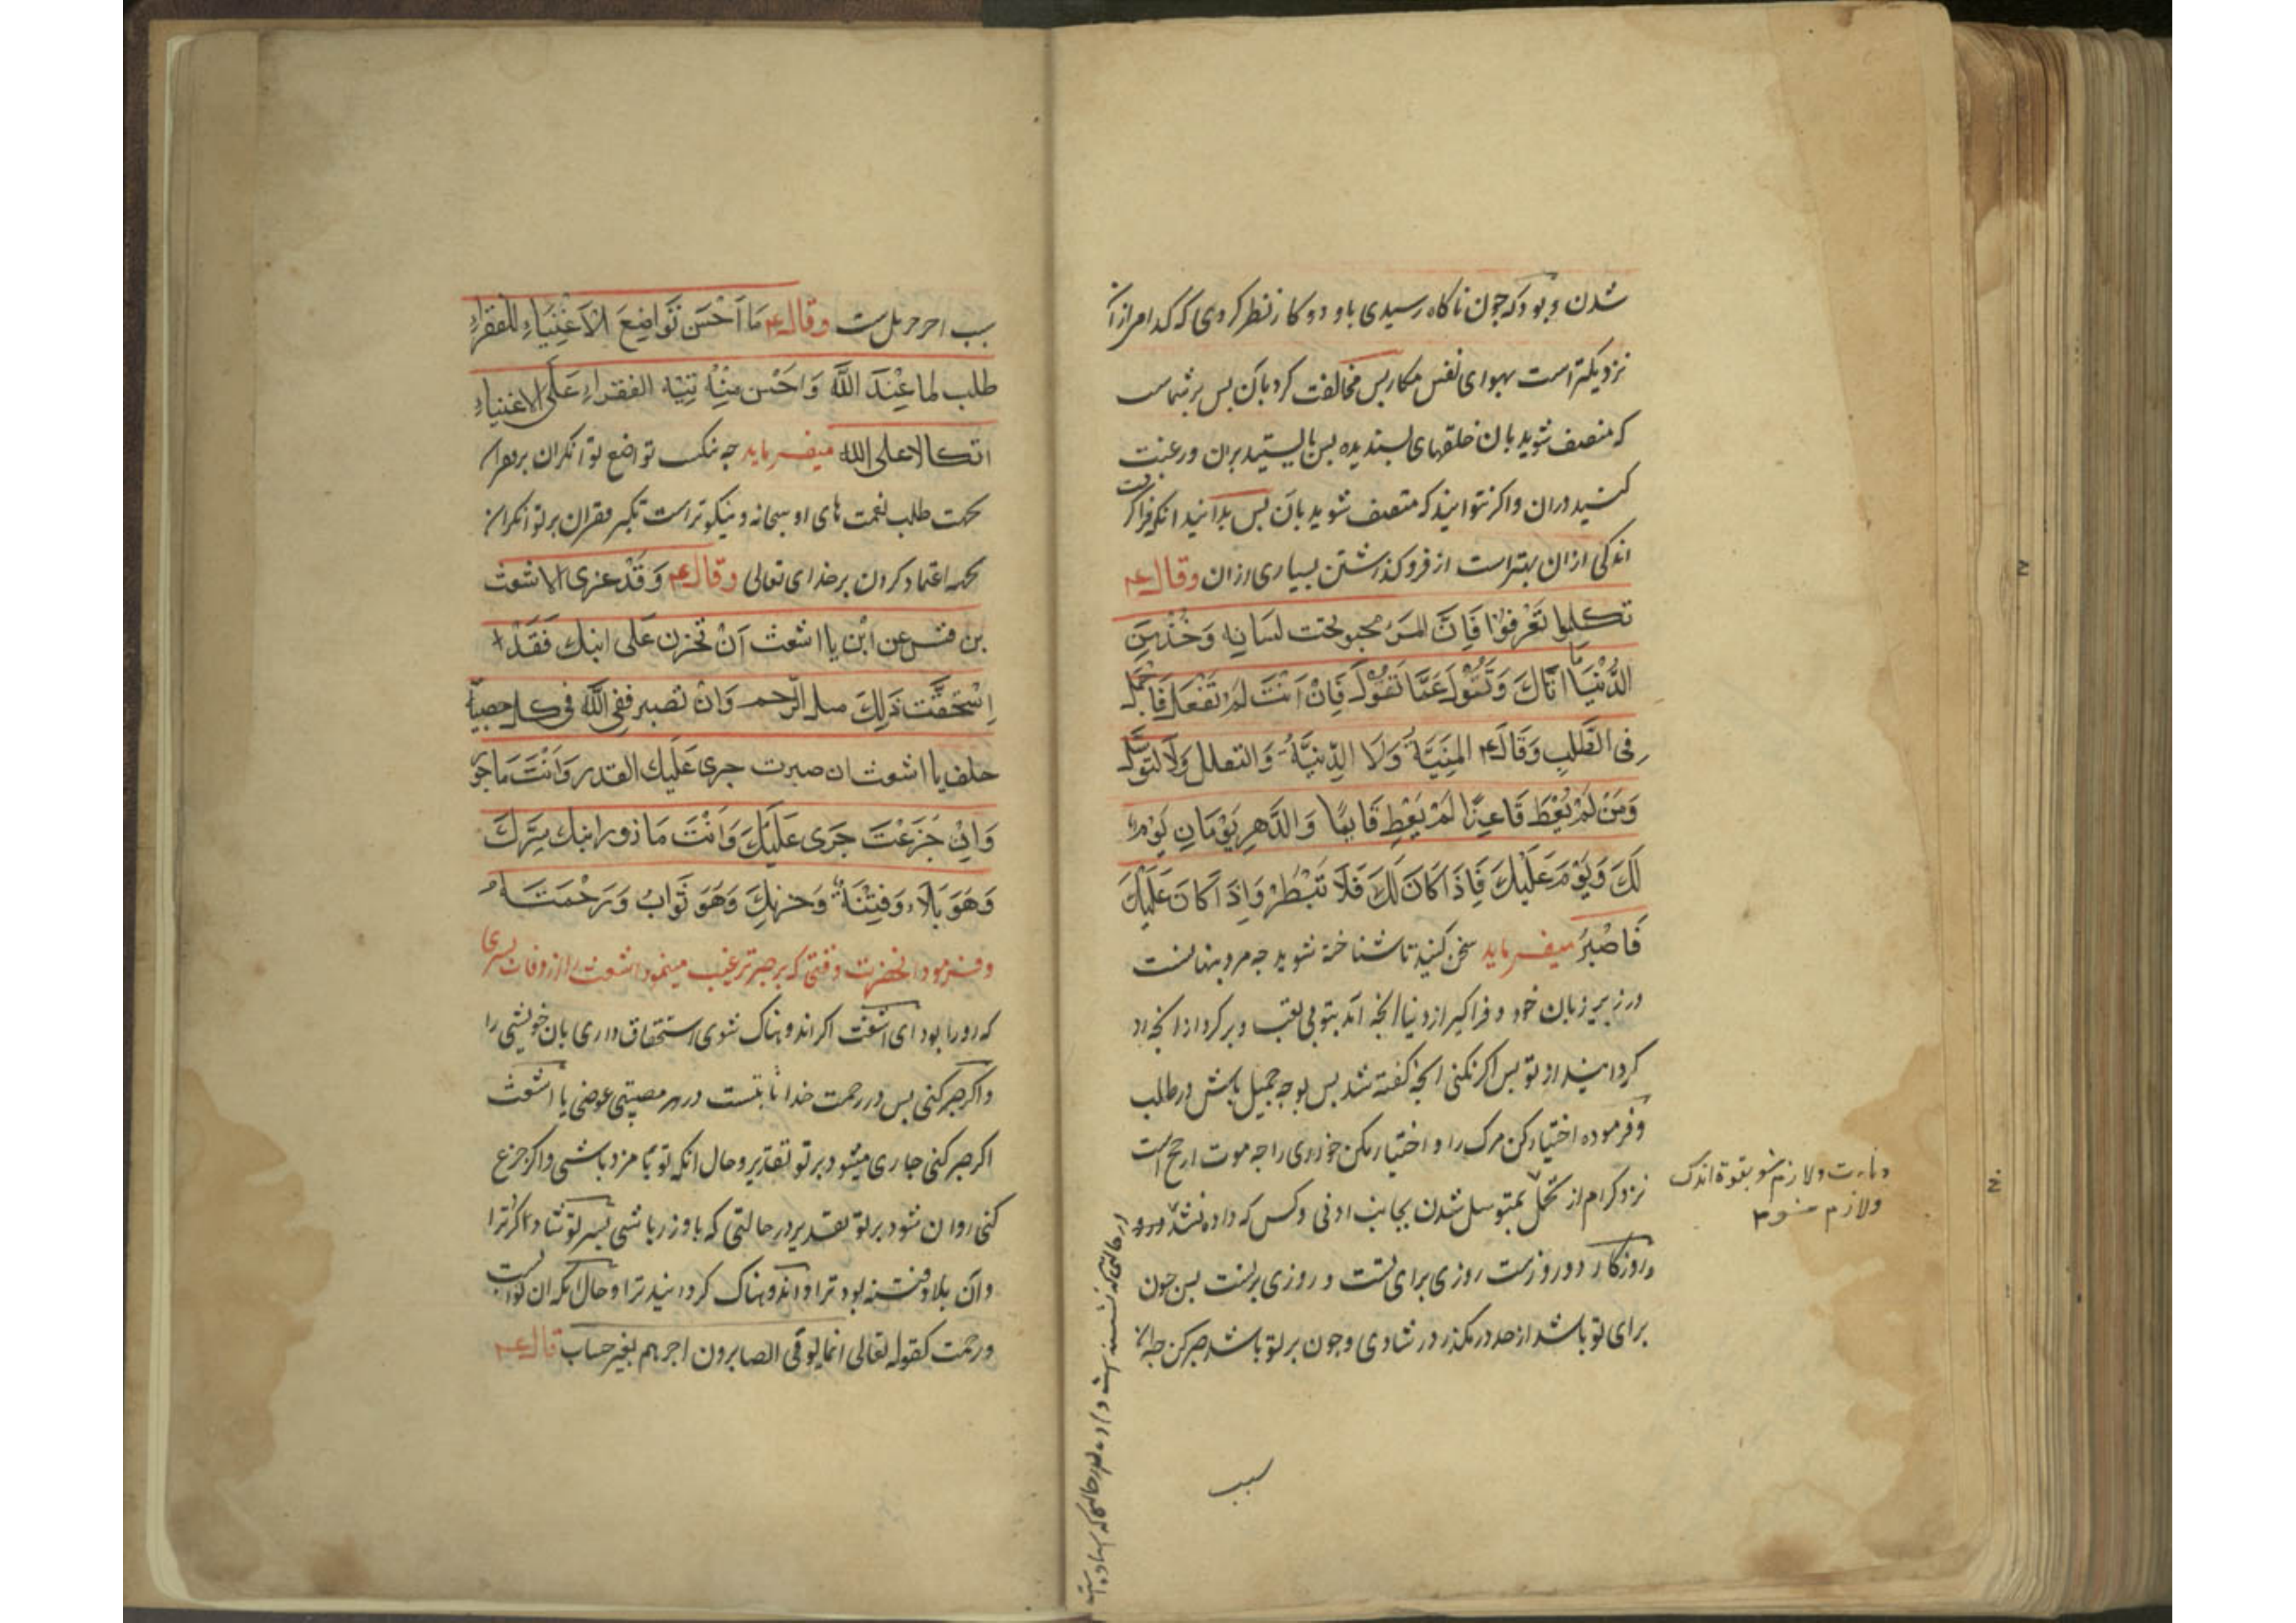 شدن و بود که چون ناکاه رسیدی باو دو کار نظر کردی که کدام از آن
نزدیکتر است بهوای نفس مکار پس مخالفت کرد بآن پس بر شماست
که متصف شوید بان خلقهای پسندیده پس بایستید بران و رغبت
کنید دران و اکر نتوانید که متصف شوید بان پس بدانید انکه فراکرفتن
اندکی ازان بهتر است از فروکذاشتن بسیاری ازان وقال ع
تكلموا تعرفوا فَاِنَّ المرء مخبو تحت لسانه وَخُذْ مِنَ
الدُّنْيَا مَا اَتَاكَ وَتَوَلَّ عَمَّا تَوَلَّى فَاِنْ اَنْتَ لَمْ تَفْعَلْ فَاَجْمِلْ
فِى الطَّلَبِ وَقَالَ ع المَنِيَّةُ وَلَا الدَّنِيَّةُ وَالتقلل وَلَا التوسل
وَمَنْ لَمْ يُعْطَ قَاعِدًا لَمْ يُعْطَ قَائِمًا وَالدَّهر يَوْمَانِ يَوْمٌ
لَكَ وَيَوْمٌ عَلَيْكَ فَاِذَا كَانَ لَكَ فَلَا تَبْطَرْ وَاِذَا كَانَ عَلَيْكَ
فَاصْبِرْ میفرماید سخن کنید تا شناخته شوید چه مرد پنهانست
در زیر زبان خود و فراکیر از دنیا انچه آید بتو بی تعب و برکرد از انچه رو
کرداند از تو پس اکر نکنی انچه کفته شد پس بوجه جمیل باش در طلب
وفرموده اختیار کن مرک را و اختیار مکن خواری را چه موت ارجح است
نزد کرام از تحمل بمتوسل شدن بجانب ادنی و کس که داده نشد
و روزکار دو روزست روزی برای تست و روزی بر تست پس چون
برای تو باشد از حد درمکذر در شادی و چون بر تو باشد صبر کن چه ان
دناءت و لازم شو بقوة اندک
ولازم مشو
سبب
سبب اجر جزیل ست وقال ع مَا اَحْسَنَ تَوَاضُعَ الاَغْنِيَاءِ للفقراء
طلب لما عِنْدَ اللَّهِ وَاحْسن مِنْهُ تِيْه الفقراءِ عَلَى الاغنياءِ
اتكالا على الله میفرماید چه نیکست تواضع توانکران بر فقرا
بجهت طلب نعمت های او سبحانه و نیکوتر است تکبر فقران بر توانکران
بجهه اعتماد کردن بر خدای تعالی وقال ع وَقَدْ عزى الاشعث
بن قيس عن ابْن يا اشعث اَنْ تحزن عَلى ابنك فَقَدْ
اِسْتَحَقَّتْ ذَلِكَ منك الرَّحم وَانْ تصبر ففى اللَّهِ فى كل مصيبة
خلف يا اشعث ان صبرت جرى عَلَيك القدر وَاَنْتَ مَاجو
وَاِنْ جَزَعْتَ جَرَى عَلَيْكَ وَاَنْتَ مَا ذور ابنك سَرَّكَ
وَهَوَ بَلَاء وَفِتْنَةٌ وَحزنك وَهَوَ ثَوَابٌ وَرَحْمَتَهُ
وفرمود انحضرت وقتی که بر صبر ترغیب مینمود اشعث را از وفات پسری
که او را بود ای اشعث اکر اندوهناک شوی استحقاق داری بان خویشی را
واکر صبر کنی پس در رحمت خدا ثابتست در هر مصیبتی عوضی یا اشعث
اکر صبر کنی جاری میشود بر تو تقدیر و حال انکه تو با مزد باشی و اکر جزع
کنی روان شود بر تو تقدیر در حالتی که با وزر باشی پسر تو شاد کرد ترا
وآن بلا و فتنه بود ترا و اندوهناک کردانید ترا و حال انکه ان ثوابست
ورحمت کقوله تعالی انما یوفی الصابرون اجرهم بغیر حساب قال ع